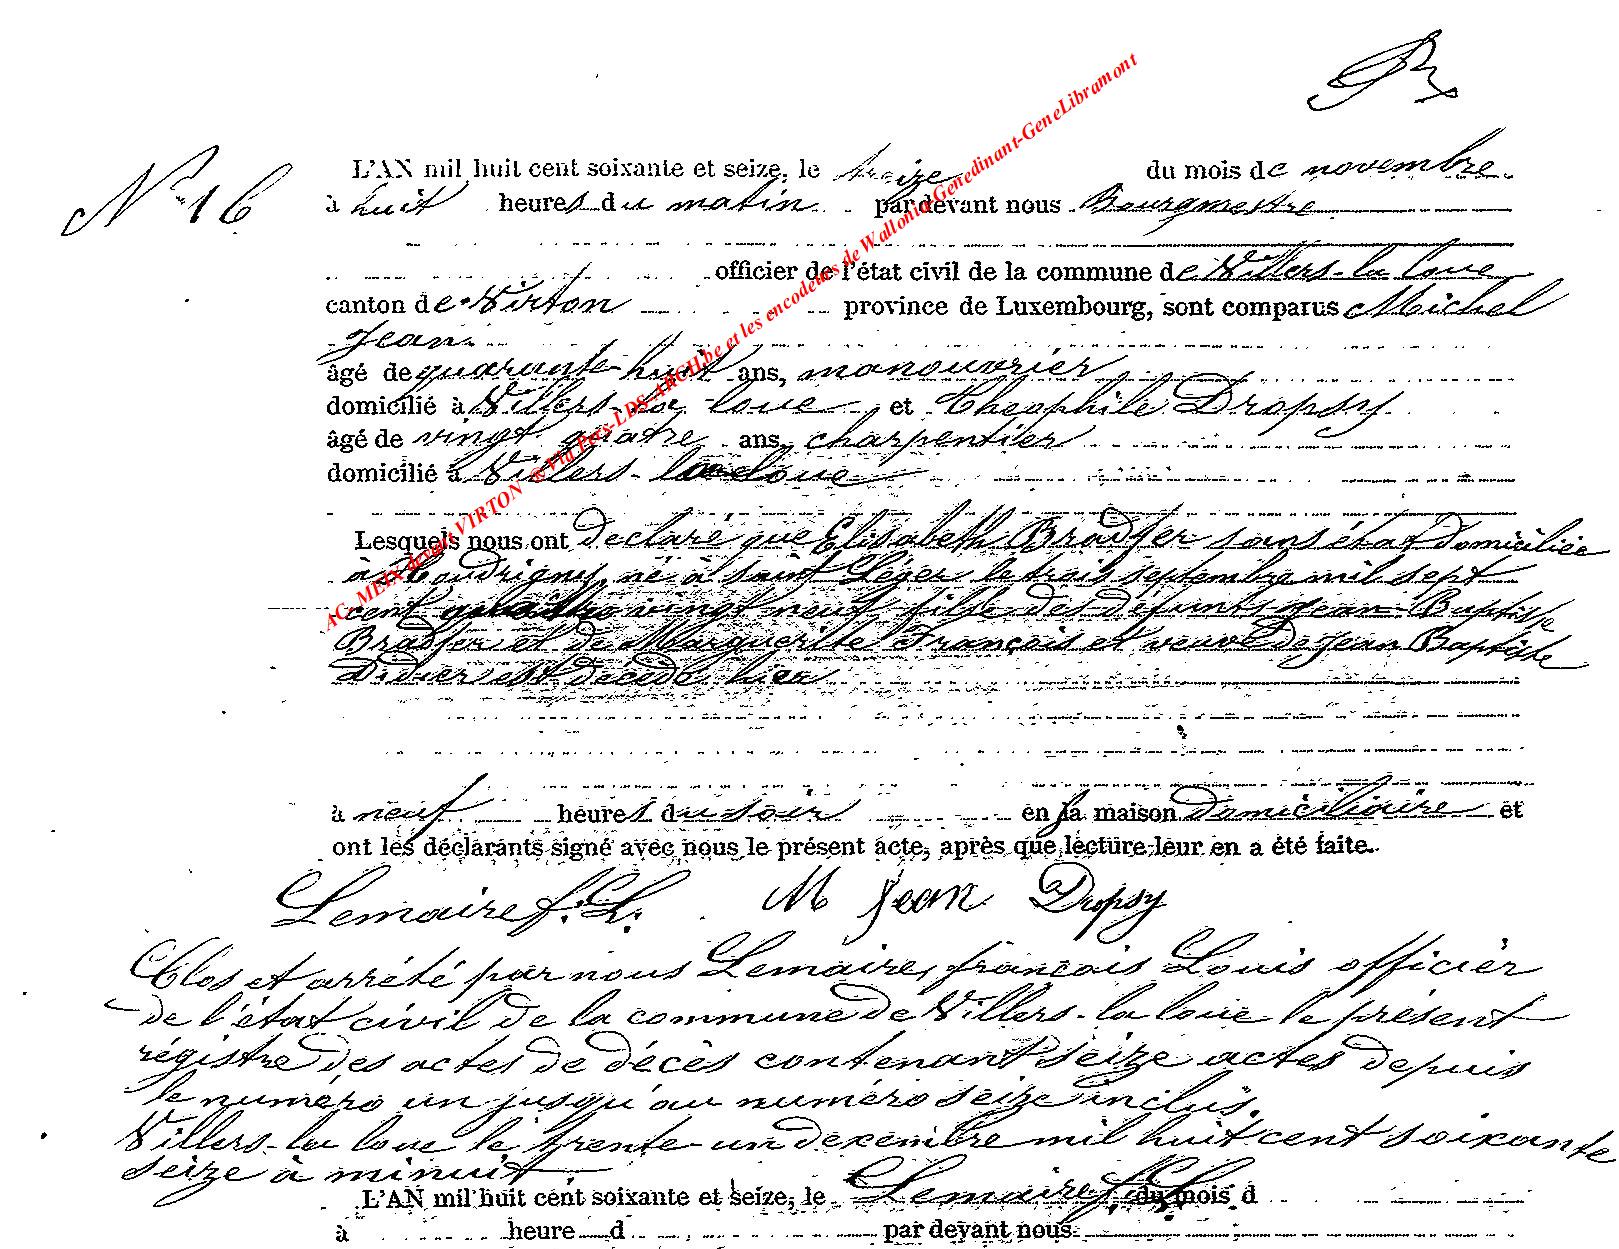 N° 16
L'AN mil huit cent soixante et seize, le treize du mois de novembre
à huit heures du matin par devant nous Bourgmestre
officier de l'état civil de la commune de Villers-la loue
canton de Virton province de Luxembourg, sont comparus Michel
Jean
âgé de quarante-huit ans, manouvrier
domicilié à Villers-la loue et Théophile Dropsy
âgé de vingt quatre ans, charpentier
domicilié à Villers-la loue
Lesquels nous ont déclaré que Elisabeth Bradfer sans état domiciliée
à Houdrigny, né à saint Léger le trois septembre mil sept
cent quatre vingt neuf fille des défunts Jean Baptiste
Bradfer et de Marguerite François et veuve de Jean Baptiste
Didier est décédé hier
à neuf heures du soir en la maison domiciliaire et
ont les déclarants signé avec nous le présent acte, après que lecture leur en a été faite.
Lemaire f. L. M Jean Dropsy
Clos et arrêté par nous Lemaire, françois Louis officier
de l'état civil de la commune de Villers-la loue le présent
régistre des actes de décès contenant seize actes depuis
le numéro un jusqu'au numéro seize inclus.
Villers-la loue le trente un decembre mil huit cent soixante
seize à minuit
L'AN mil huit cent soixante et seize, le Lemaire f. L. du mois d
à heure d par devant nous
AC_MEIX devant VIRTON ®Via Perx-LDS-ARCH.be et les encodeurs de WalloniaGenedinant-GeneLibramont